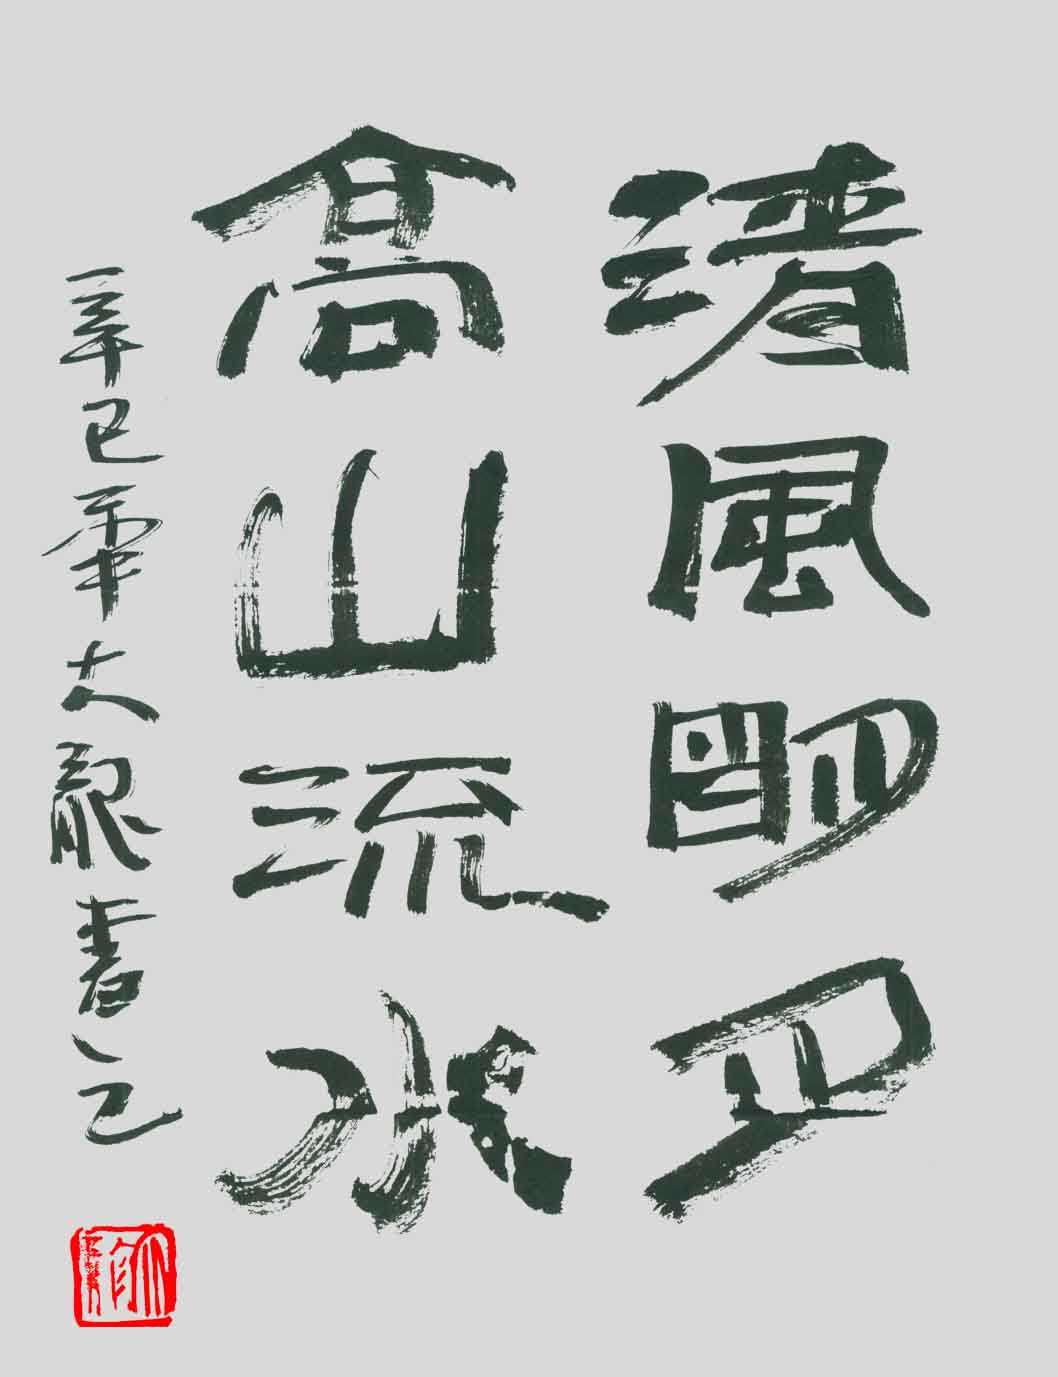 清風明月
高山流水
辛巳年大龍書之